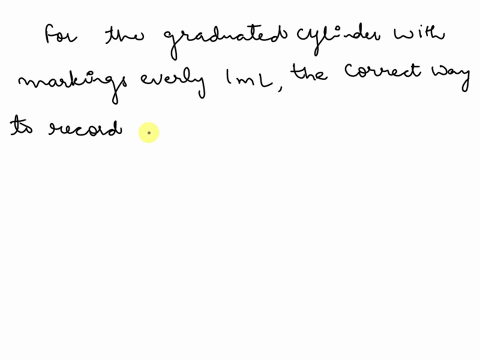 For the graduated cylinder with
markings everly 1mL, the correct way
to record